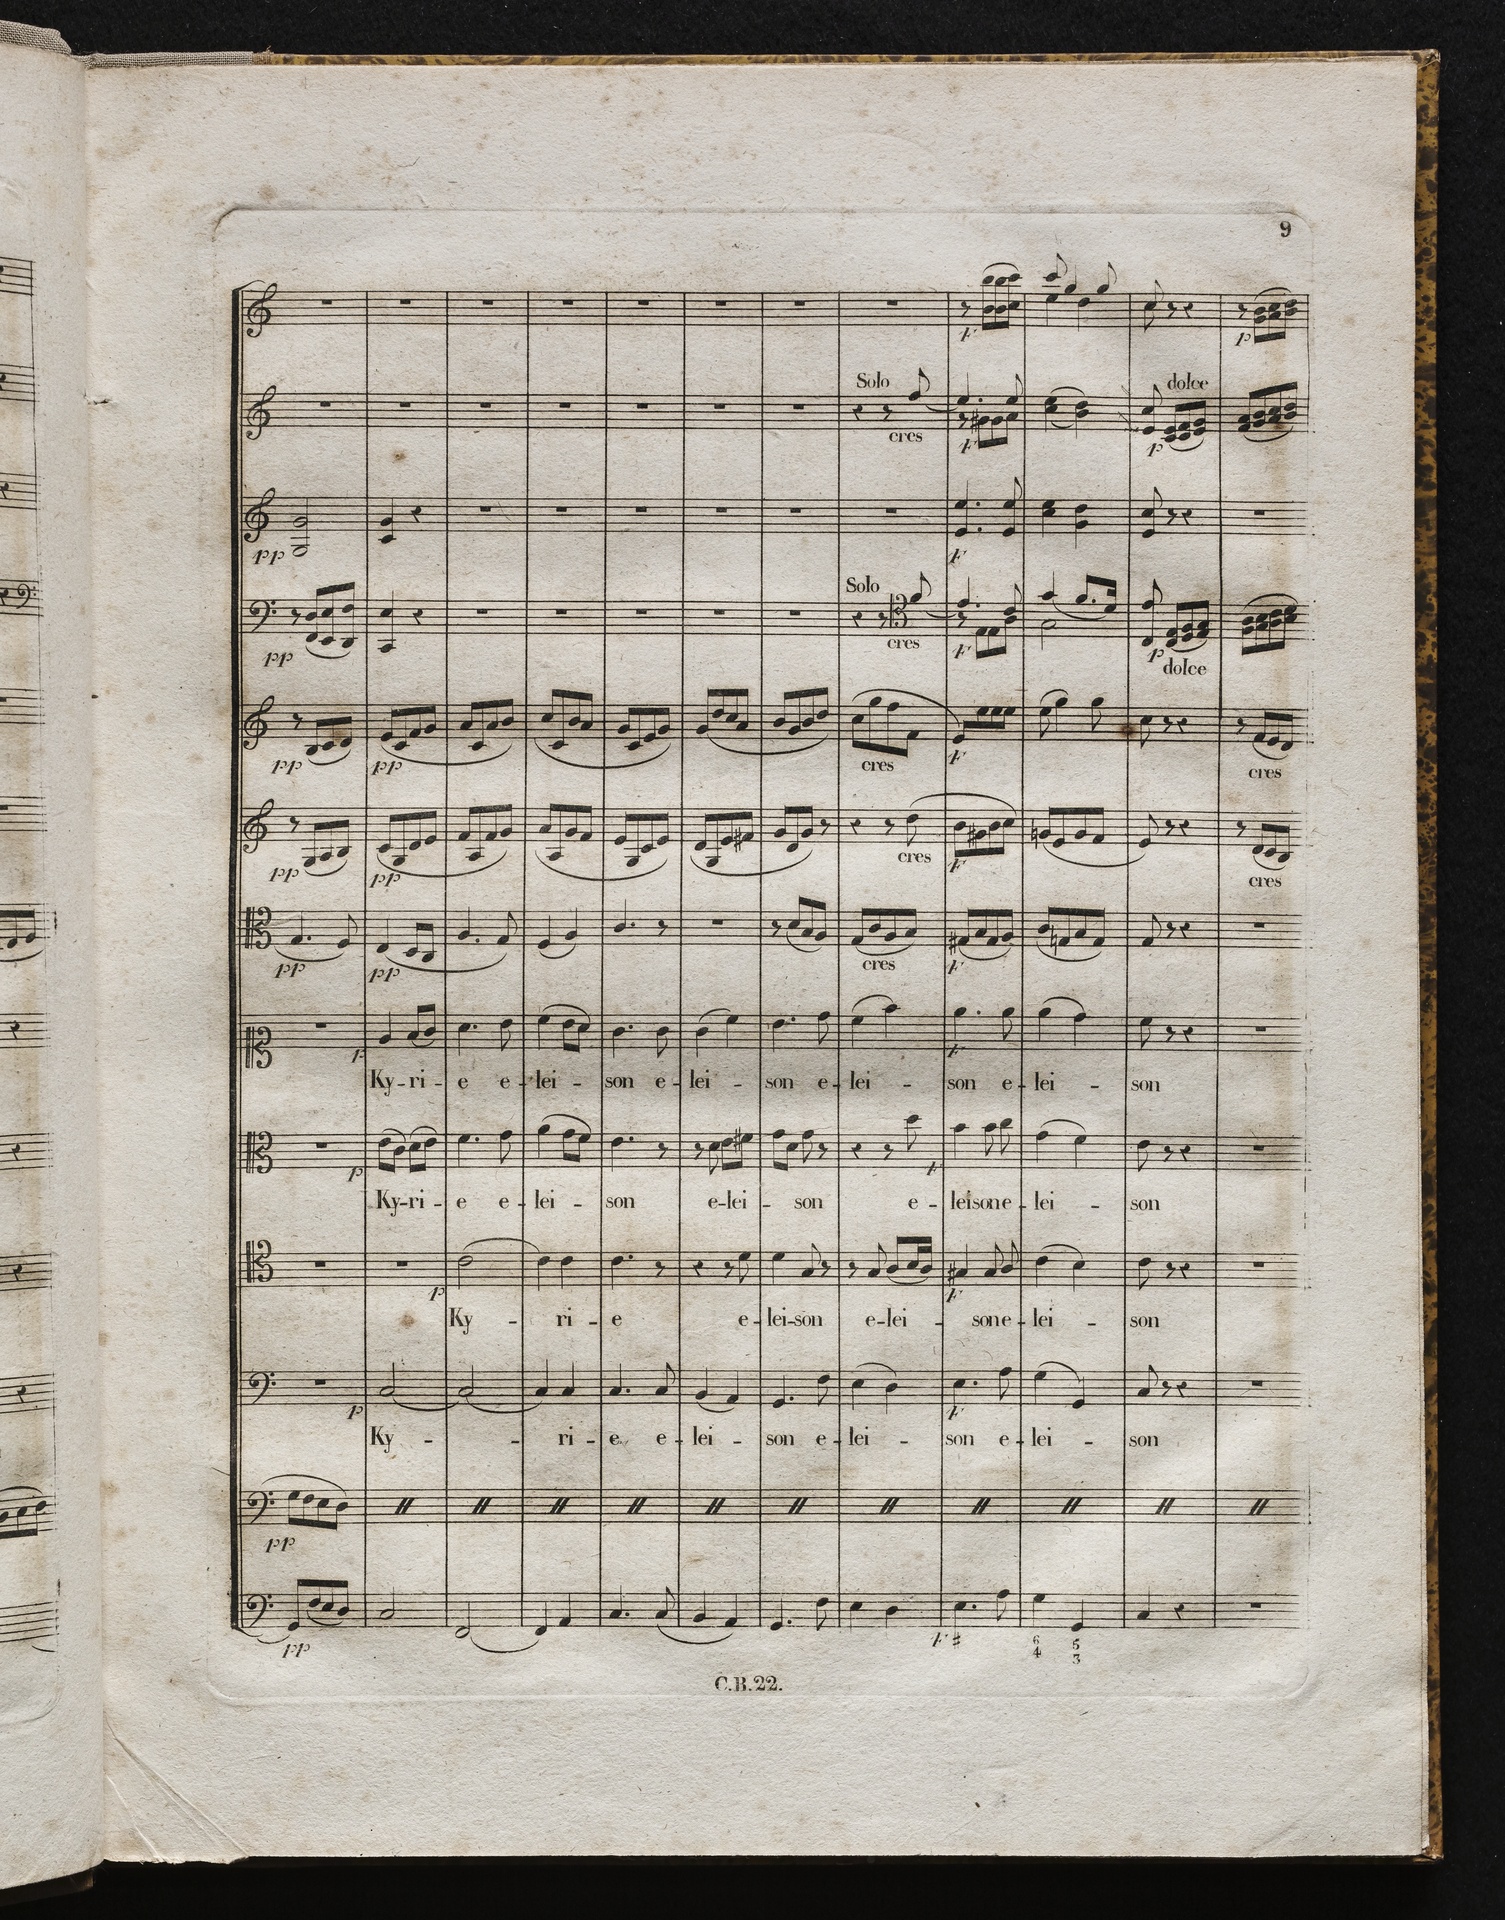 9
F
p
Solo
dolce
cres
F
p
pp
F
Solo
cres
pp
F
p
dolce
pp
pp
cres
F
cres
pp
pp
cres
F
cres
pp
pp
cres
F
p
F
Ky-ri-e e-lei-son e-lei-son e-lei-son e-lei-son
p
F
Ky-ri-e e-lei-son e-lei-son e-leisone-lei-son
p
F
Ky-ri-e e-lei-son e-lei-sone-lei-son
p
F
Ky--ri-e e-lei-son e-lei-son e-lei-son
pp
pp
F # 6 5
4 3
C.B.22.